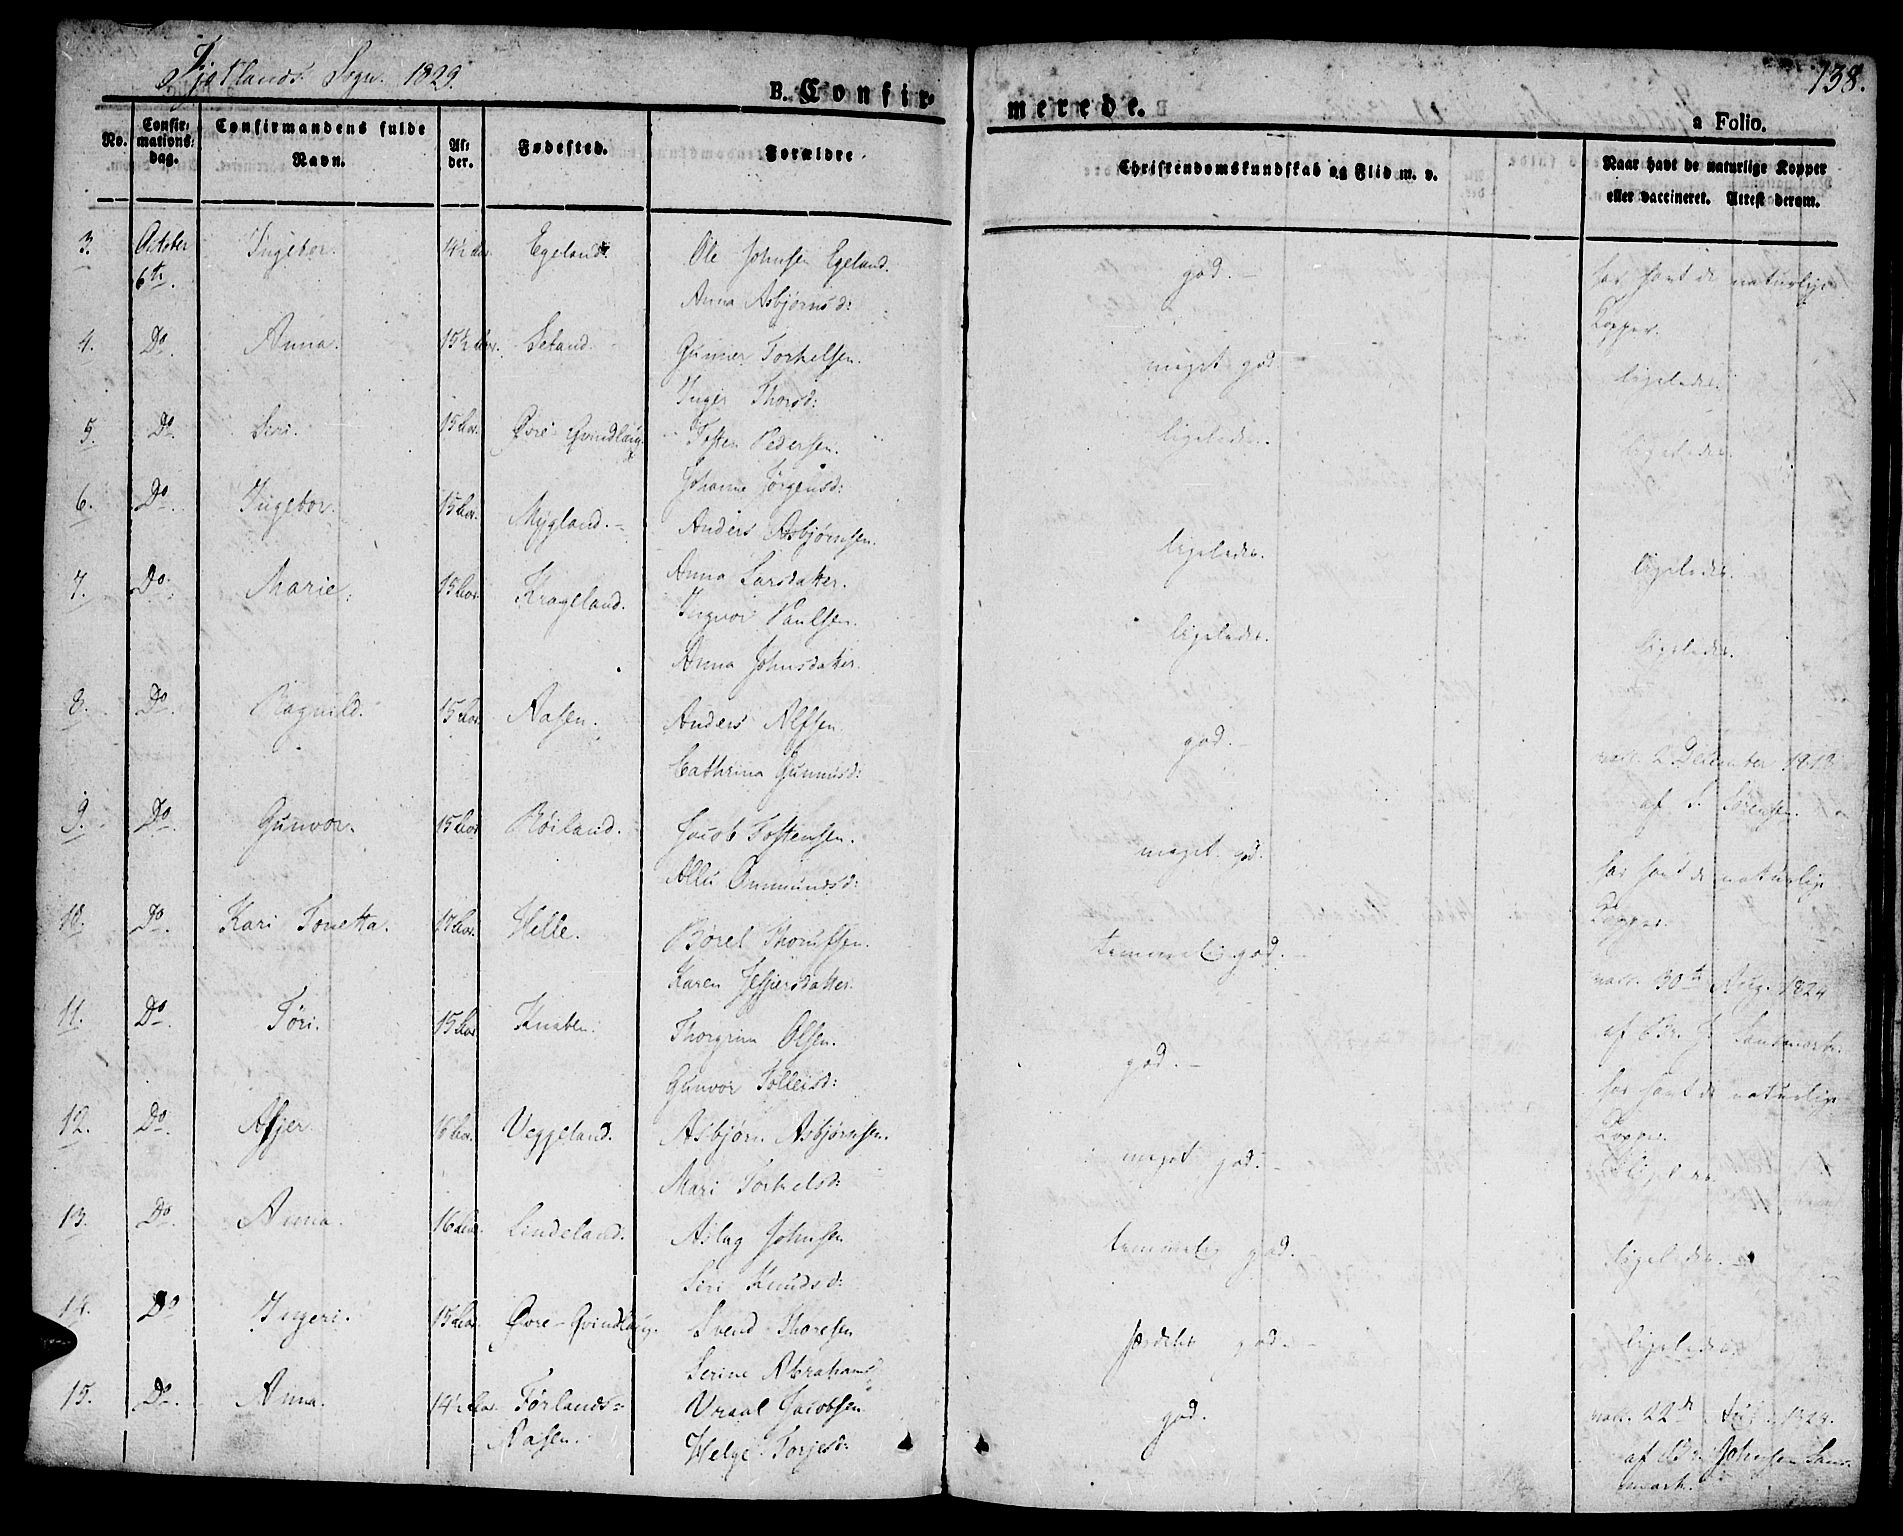 Fjotlands Sogn. 1829.
B. Confir-
merede.
138.
a Folio.
No.
Confir-
mations-
dag.
Confirmandens fulde
Navn.
Al-
der.
Fødested.
Forældre
Christendomskundskab og Flid m. v.
Naar havt de naturlige Kopper
eller vaccineret. Attest derom.
3. October Ingebor. 14½ Aar. Egeland. Ole Johnsen Egeland. god. har havt de naturlige
6te. Anna Asbjørnsd: Kopper.
4. Do. Anna. 15½ Aar. Gunner Torkelsen. meget god ligeledes.
Inger Thorsd:
5. Do. Siri. 15 Aar. Øvre Qvindlaug. Tosten Pedersen. ligeledes. ligeledes.
Johanne Jørgensd:
6. Do. Ingebor. 15 Aar. Mygland. Anders Asbjørnsen. ligeledes. ligeledes.
Anna Larsdatter.
7. Do. Marie. 15 Aar. Krageland. Ingvor Paulsen. ligeledes. ligeledes.
Anna Johnsdatter.
8. Do. Ragnild. 15 Aar. Aasen. Anders Alfsen. god. vacc. 2 December 1818
Cathrina Gunnersd: af S. Sørensen.
9. Do. Gunvor. 15 Aar. Røiland. Jacob Tostensen. meget god. har havt de naturlige
Onmundsd: Kopper.
10. Do. Kari Tonetta. 17 Aar. Helle. Børel temmelig god. vacc. 30te Aug. 1824
Karen af J.
11. Do. Tøri. 15 Aar. Knaben. Thorgrim Olsen. god. har havt de naturlige
Gunvor Tolleisd: Kopper.
12. Do. Asjer. Aar. Veggeland. Asbjørn Asbjørnsen. meget god.
Mari Torkelsd:
13. Do. Anna. 16 Aar. Lindeland. Aslag Johnsen temmelig god. ligeledes.
Siri Knudsd:
14. Do Ingeri. 15 Aar. Øvre-Qvindlaug. Svend Thoresen god. ligeledes.
Serine Abrahamsd:
15. Do. Anna. 14½ Aar. Førlands= Vraal Jacobsen god. vacc. 22de 1824.
Aasen. Helge Torjesd: af Johnsen San-
mark.